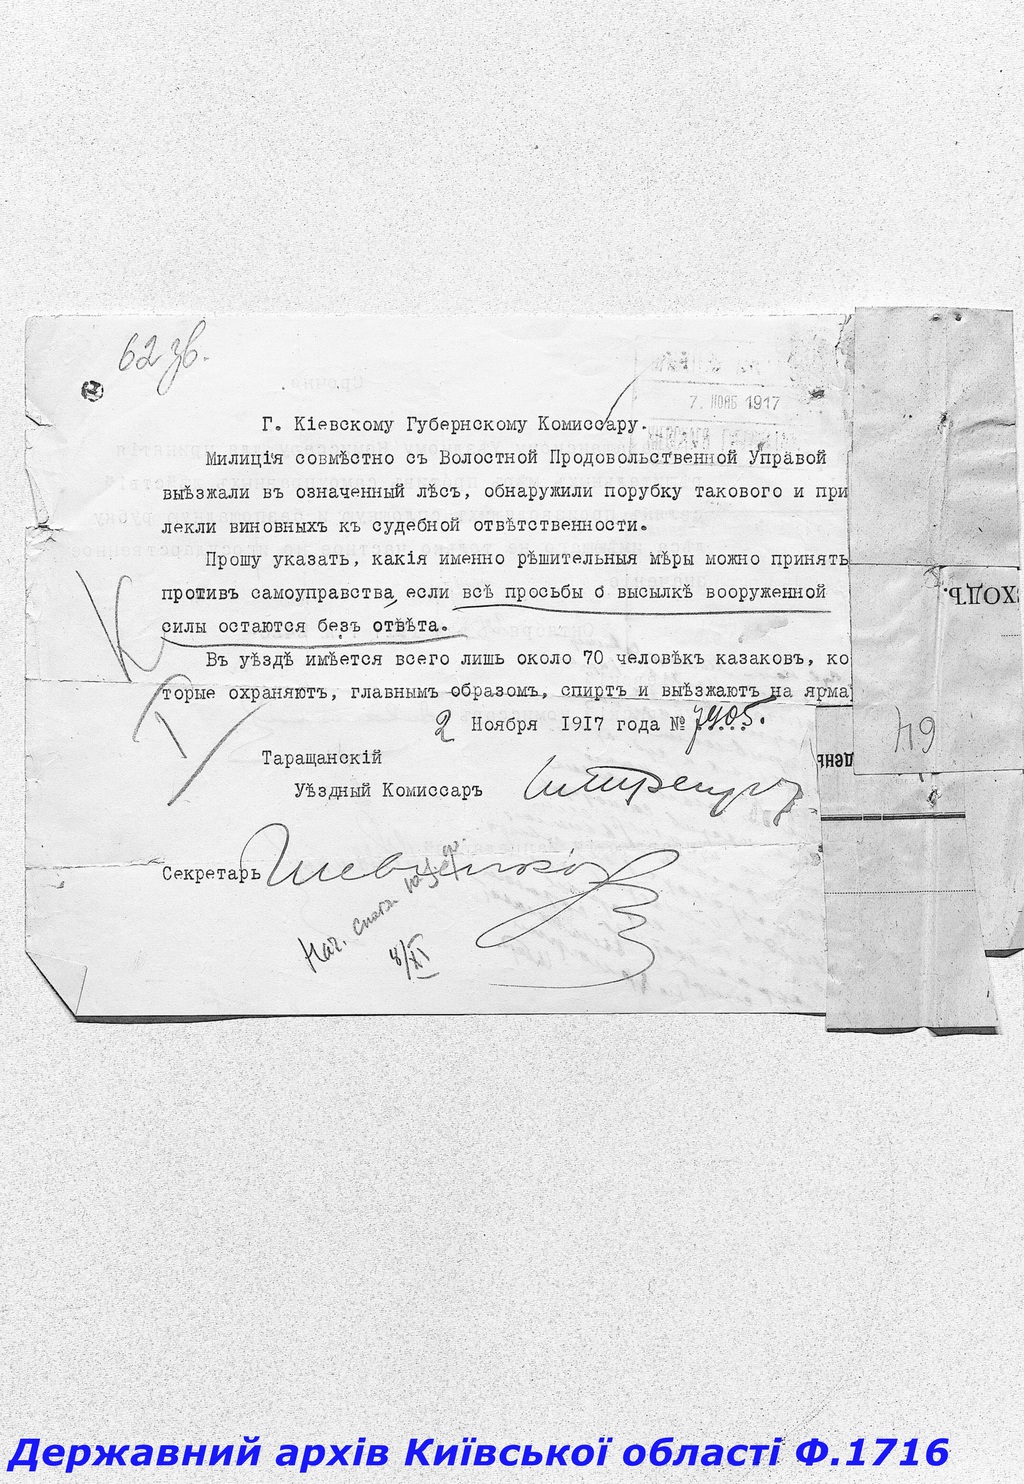 62 зв.
7. НОЯБ 1917
Г. Кіевскому Губернскому Комиссару.
Милиція совмѣстно съ Волостной Продовольственной Управой
выѣзжали въ означенный лѣсъ, обнаружили порубку такового и при
лекли виновныхъ къ судебной отвѣтственности.
Прошу указать, какія именно рѣшительныя мѣры можно принять
противъ самоуправства, если всѣ просьбы о высылкѣ вооруженной
силы остаются безъ отвѣта.
Въ уѣздѣ имѣется всего лишь около 70 человѣкъ казаковъ, ко
торые охраняютъ, главнымъ образомъ, спиртъ и выѣзжаютъ на ярма
2 Ноября 1917 года № 7905.
Таращанскій
Уѣздный Комиссаръ
Секретарь
Нач.
8/XI
ХОДЪ.
день
64
Державний архів Київської області Ф.1716